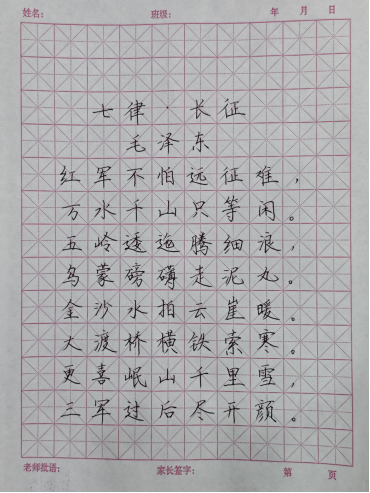 姓名： 班级： 年 月 日
七律·长征
毛泽东
红军不怕远征难，
万水千山只等闲。
五岭逶迤腾细浪，
乌蒙磅礴走泥丸。
金沙水拍云崖暖。
大渡桥横铁索寒。
更喜岷山千里雪，
三军过后尽开颜。
老师批语： 家长签字： 第 页